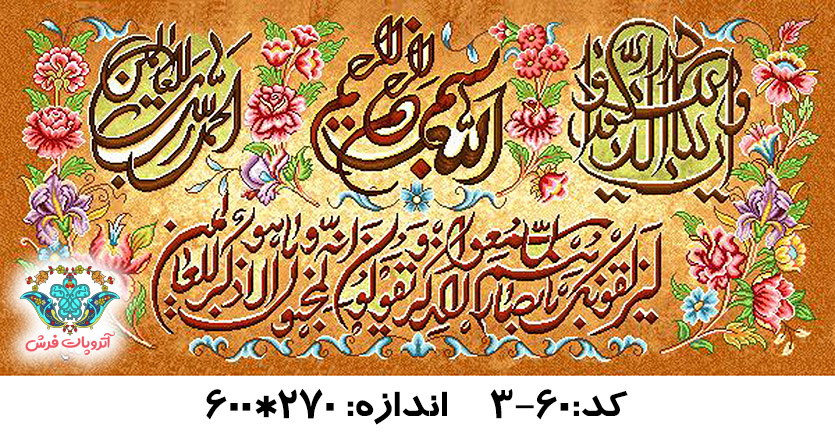 وان یکاد الذین کفروا
بسم الله الرحمن الرحیم
الحمد لله رب العالمین
لیزلقونک بابصارهم لما سمعوا الذکر و یقولون انه لمجنون و ما هو الا ذکر للعالمین
آتروپات فرش
کد:۶۰-۳ اندازه: ۲۷۰*۶۰۰